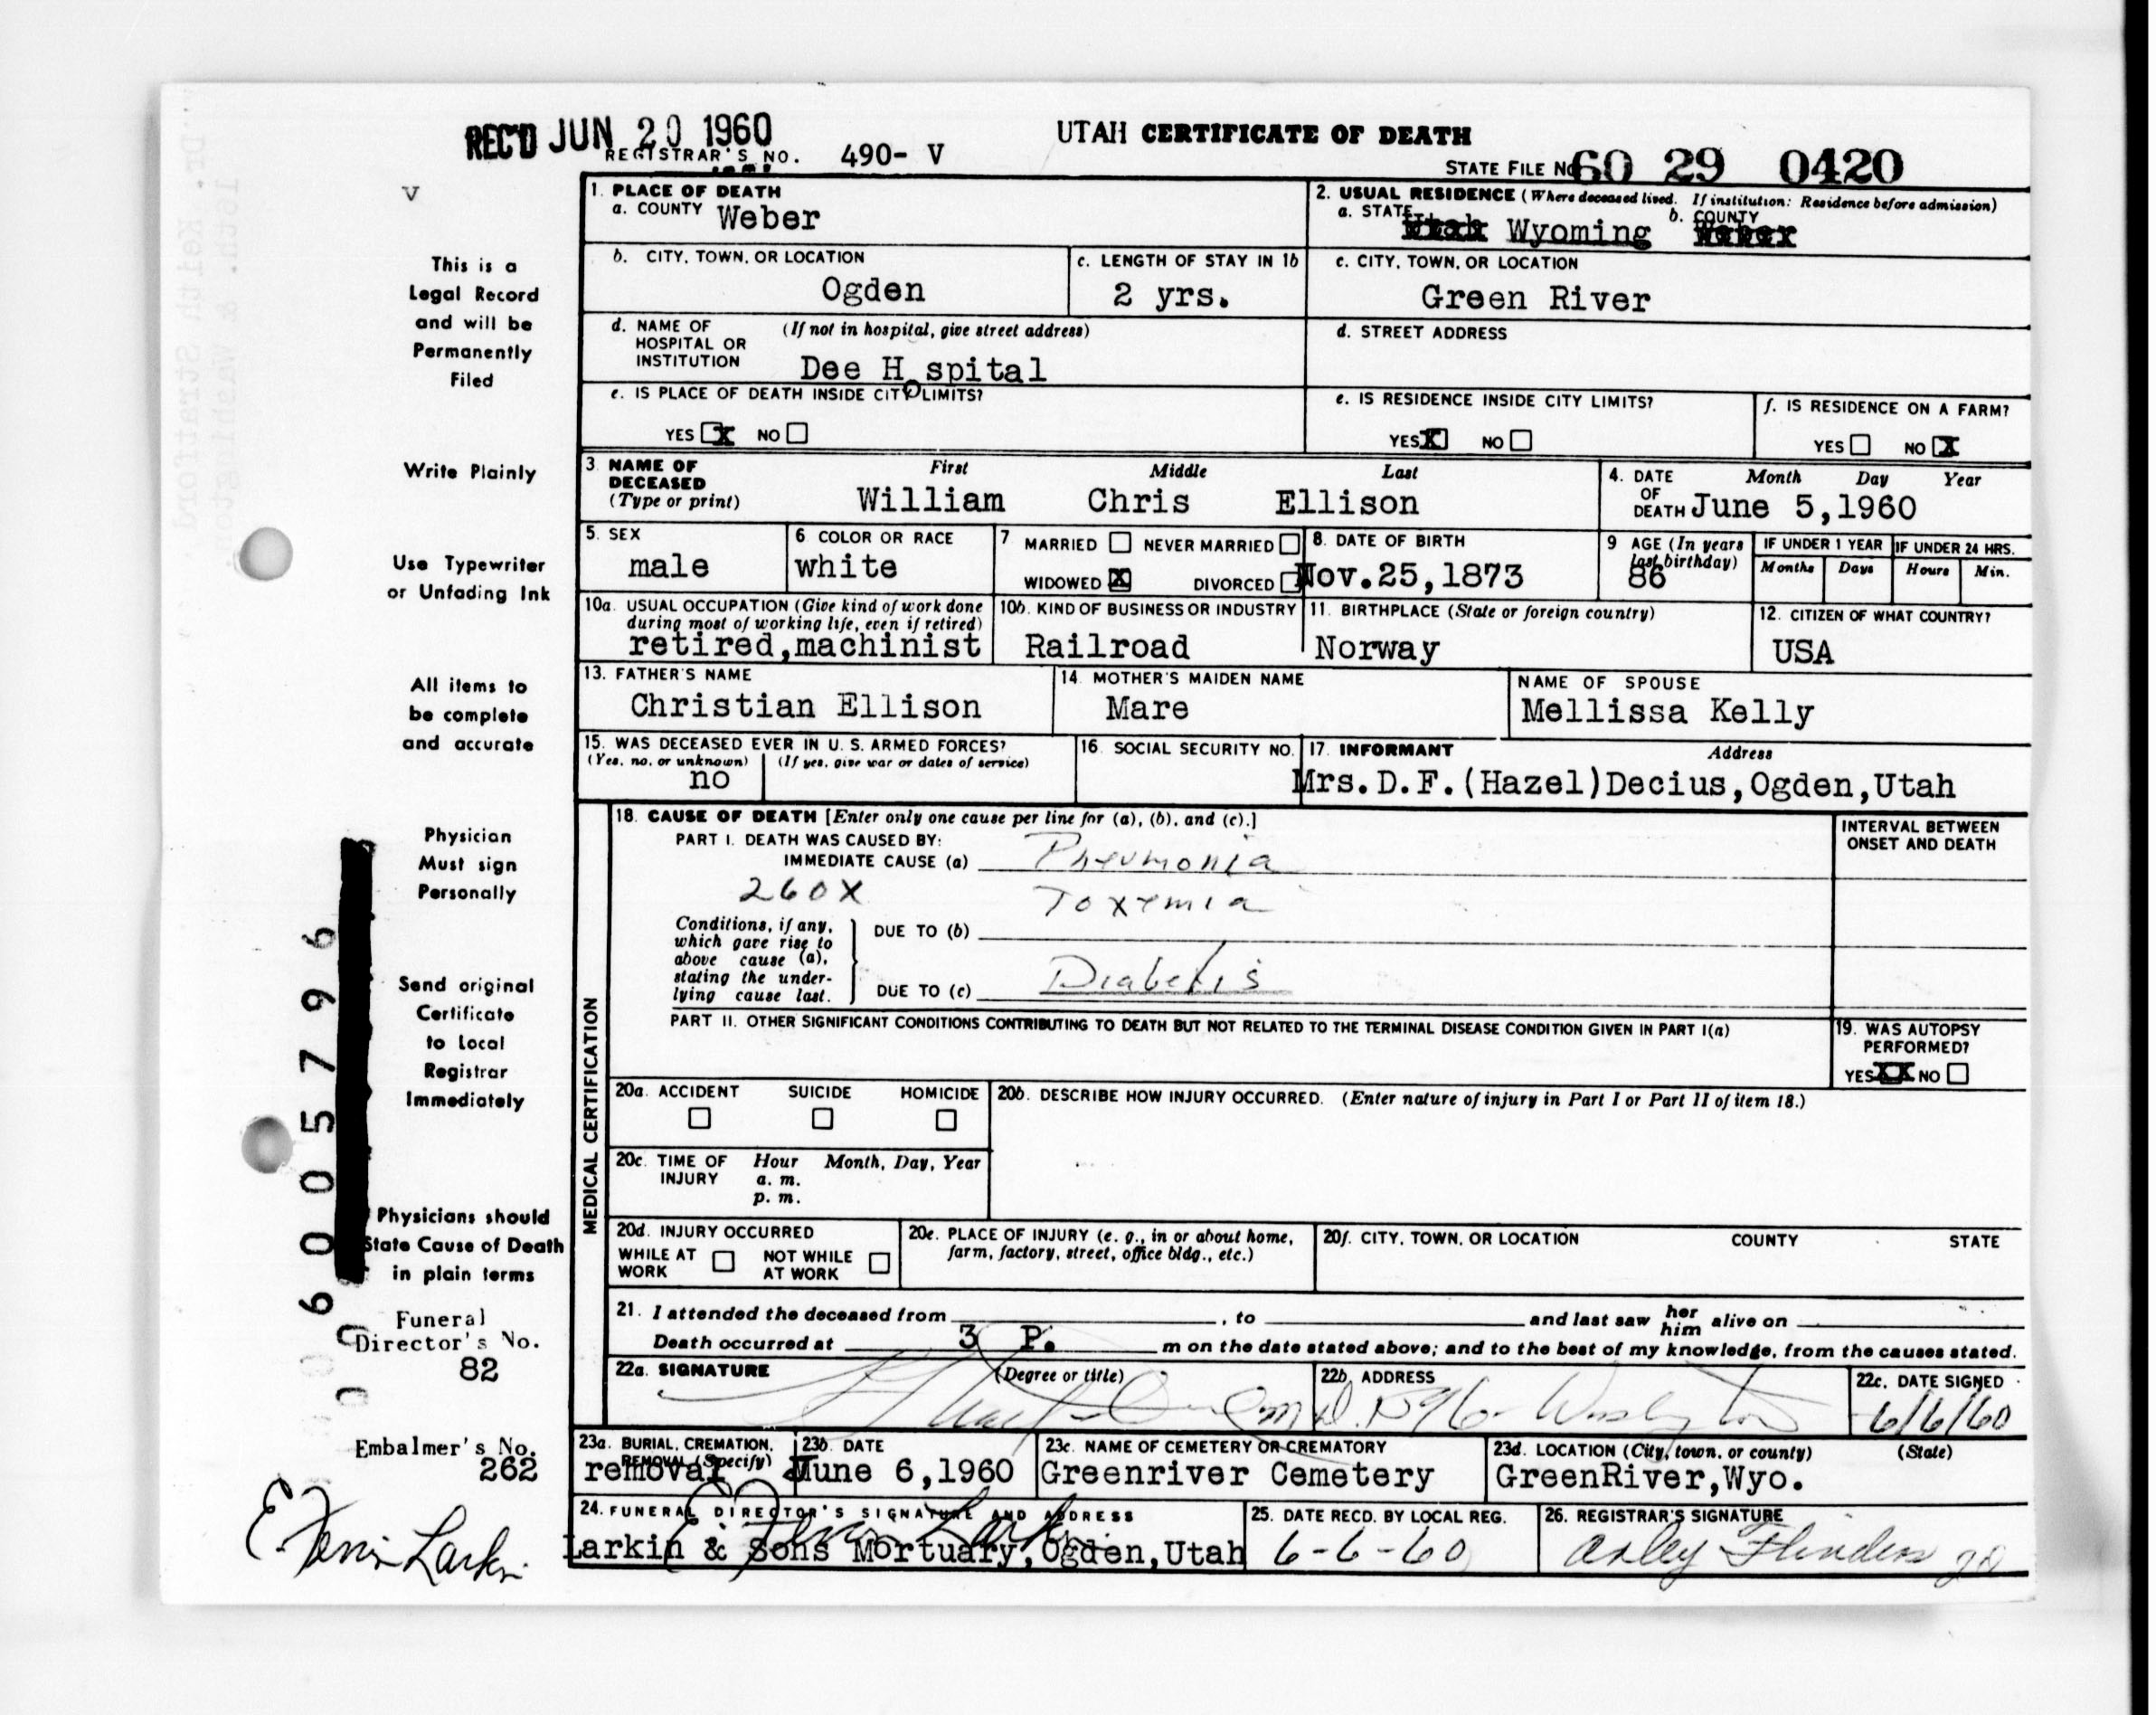 REC'D JUN 20 1960
REGISTRAR'S NO. 490- V
UTAH CERTIFICATE OF DEATH
STATE FILE NO. 60 29 0420
V
1. PLACE OF DEATH
a. COUNTY Weber
2. USUAL RESIDENCE (Where deceased lived. If institution: Residence before admission)
a. STATE Utah Wyoming b. COUNTY Weber
This is a
Legal Record
and will be
Permanently
Filed
b. CITY, TOWN, OR LOCATION
Ogden
c. LENGTH OF STAY IN 1b
2 yrs.
c. CITY, TOWN, OR LOCATION
Green River
d. NAME OF HOSPITAL OR INSTITUTION (If not in hospital, give street address)
Dee Hospital
d. STREET ADDRESS
e. IS PLACE OF DEATH INSIDE CITY LIMITS?
YES X NO
e. IS RESIDENCE INSIDE CITY LIMITS?
YES X NO
f. IS RESIDENCE ON A FARM?
YES NO X
Write Plainly
3. NAME OF DECEASED (Type or print)
First Middle Last
William Chris Ellison
4. DATE OF DEATH Month Day Year
June 5,1960
Use Typewriter
or Unfading Ink
5. SEX
male
6. COLOR OR RACE
white
7 MARRIED NEVER MARRIED
WIDOWED X DIVORCED
8. DATE OF BIRTH
Nov.25,1873
9 AGE (In years last birthday)
86
IF UNDER 1 YEAR
Months Days
IF UNDER 24 HRS.
Hours Min.
10a. USUAL OCCUPATION (Give kind of work done during most of working life, even if retired)
retired,machinist
10b. KIND OF BUSINESS OR INDUSTRY
Railroad
11. BIRTHPLACE (State or foreign country)
Norway
12. CITIZEN OF WHAT COUNTRY?
USA
All items to
be complete
and accurate
13. FATHER'S NAME
Christian Ellison
14. MOTHER'S MAIDEN NAME
Mare
NAME OF SPOUSE
Mellissa Kelly
15. WAS DECEASED EVER IN U. S. ARMED FORCES?
(Yes, no, or unknown) (If yes, give war or dates of service)
no
16. SOCIAL SECURITY NO.
17. INFORMANT Address
Mrs.D.F.(Hazel)Decius,Ogden,Utah
Physician
Must sign
Personally
MEDICAL CERTIFICATION
18. CAUSE OF DEATH [Enter only one cause per line for (a), (b), and (c).]
PART I. DEATH WAS CAUSED BY:
IMMEDIATE CAUSE (a) Pneumonia
260X Toxemia
Conditions, if any, which gave rise to above cause (a), stating the underlying cause last.
DUE TO (b)
DUE TO (c) Diabetis
INTERVAL BETWEEN ONSET AND DEATH
Send original
Certificate
to Local
Registrar
Immediately
PART II. OTHER SIGNIFICANT CONDITIONS CONTRIBUTING TO DEATH BUT NOT RELATED TO THE TERMINAL DISEASE CONDITION GIVEN IN PART I(a)
19. WAS AUTOPSY PERFORMED?
YES XX NO
20a. ACCIDENT SUICIDE HOMICIDE
20b. DESCRIBE HOW INJURY OCCURRED. (Enter nature of injury in Part I or Part II of item 18.)
20c. TIME OF INJURY Hour Month, Day, Year
a. m.
p. m.
Physicians should
State Cause of Death
in plain terms
20d. INJURY OCCURRED
WHILE AT WORK NOT WHILE AT WORK
20e. PLACE OF INJURY (e. g., in or about home, farm, factory, street, office bldg., etc.)
20f. CITY, TOWN, OR LOCATION COUNTY STATE
6005796
21. I attended the deceased from , to and last saw her him alive on
Death occurred at 3 P. m on the date stated above; and to the best of my knowledge, from the causes stated.
Funeral
Director's No.
82
22a. SIGNATURE (Degree or title)
M.D.
22b. ADDRESS
22c. DATE SIGNED
6/6/60
Embalmer's No.
262
23a. BURIAL, CREMATION, REMOVAL (Specify)
removal
23b. DATE
June 6,1960
23c. NAME OF CEMETERY OR CREMATORY
Greenriver Cemetery
23d. LOCATION (City, town, or county) (State)
GreenRiver,Wyo.
24. FUNERAL DIRECTOR'S SIGNATURE AND ADDRESS
Larkin & Sons Mortuary,Ogden,Utah
25. DATE RECD. BY LOCAL REG.
6-6-60
26. REGISTRAR'S SIGNATURE